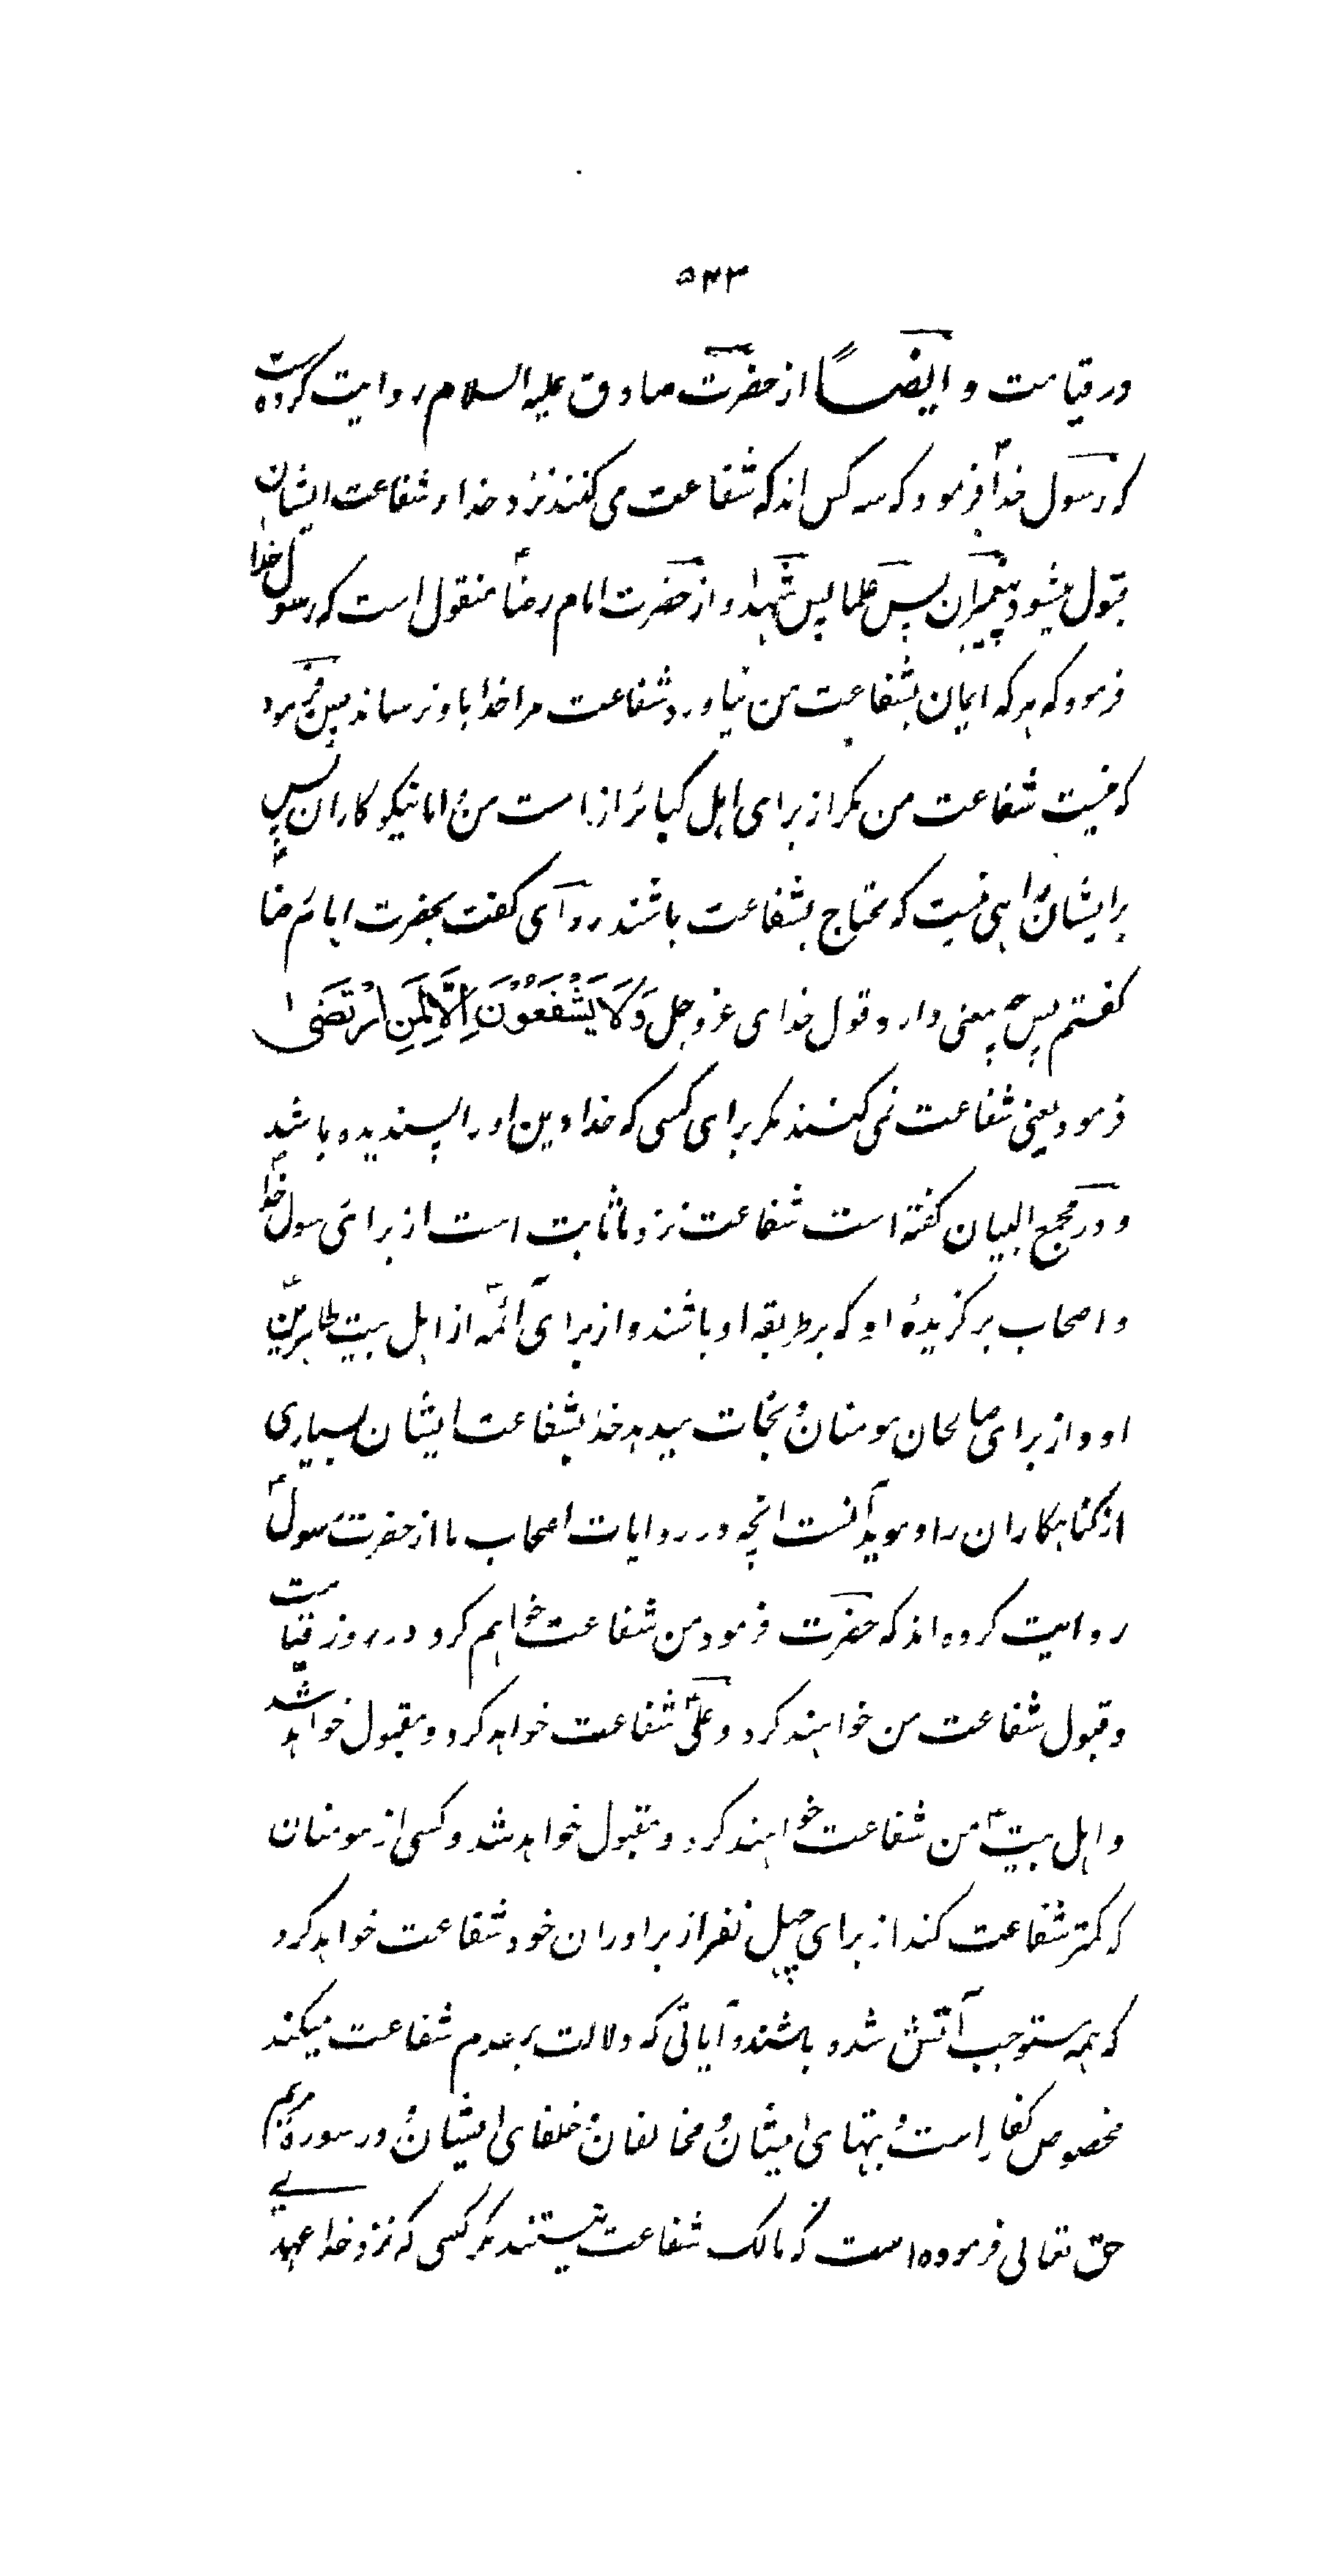 ۵۴۳
در قیامت و ایضاً از حضرت صادق علیه السلام روایت کرده است
که رسول خداؐ فرمود که سه کس اند که شفاعت می کنند نزد خدا و شفاعت ایشان
قبول میشود پیغمبران پس علما پس شهدا و از حضرت امام رضاؑ منقول است که رسول خدا
فرمود که هر که ایمان بشفاعت من نیاورد شفاعت مرا خدا باو نرساند پس فرمود
که نیست شفاعت من مکر از برای اهل کبائر از امت من و اما نیکو کاران پس
بر ایشان راهی نیست که محتاج بشفاعت باشند راوی کفت بحضرت امام رضاؑ
کفتم پس چه معنی دارد قول خدای عز و جل وَلَا یَشْفَعُوْنَ اِلَّا لِمَنِ ارْتَضٰی
فرمود یعنی شفاعت نمی کنند مکر برای کسی که خدا دین او را پسندیده باشد
و در مجمع البیان کفته است شفاعت نزد ما ثابت است از برای رسول خداؐ
و اصحاب برکزیدهٔ او که بر طریقه او باشند و از برای ائمهؑ از اهل بیت طاهرینؑ
او و از برای صالحان مومنان و نجات میدهد خدا بشفاعت ایشان بسیاری
از کناهکاران را و موید آنست انچه در روایات اصحاب ما از حضرت رسولؐ
روایت کرده اند که حضرت فرمود من شفاعت خواهم کرد در روز قیامت
و قبول شفاعت من خواهند کرد و علیؑ شفاعت خواهد کرد و مقبول خواهد شد
و اهل بیتؑ من شفاعت خواهند کرد و مقبول خواهد شد و کسی از مومنان
که کمتر شفاعت کند از برای چهل نفر از برادران خود شفاعت خواهد کرد
که همه مستوجب آتش شده باشند و آیاتی که دلالت بر عدم شفاعت میکند
مخصوص کفار است و بتهای ایشان و مخالفان و خلفای ایشان و در سورهٔ مریم
حق تعالی فرموده است که مالک شفاعت نیستند مکر کسی که نزد خدا عهدی